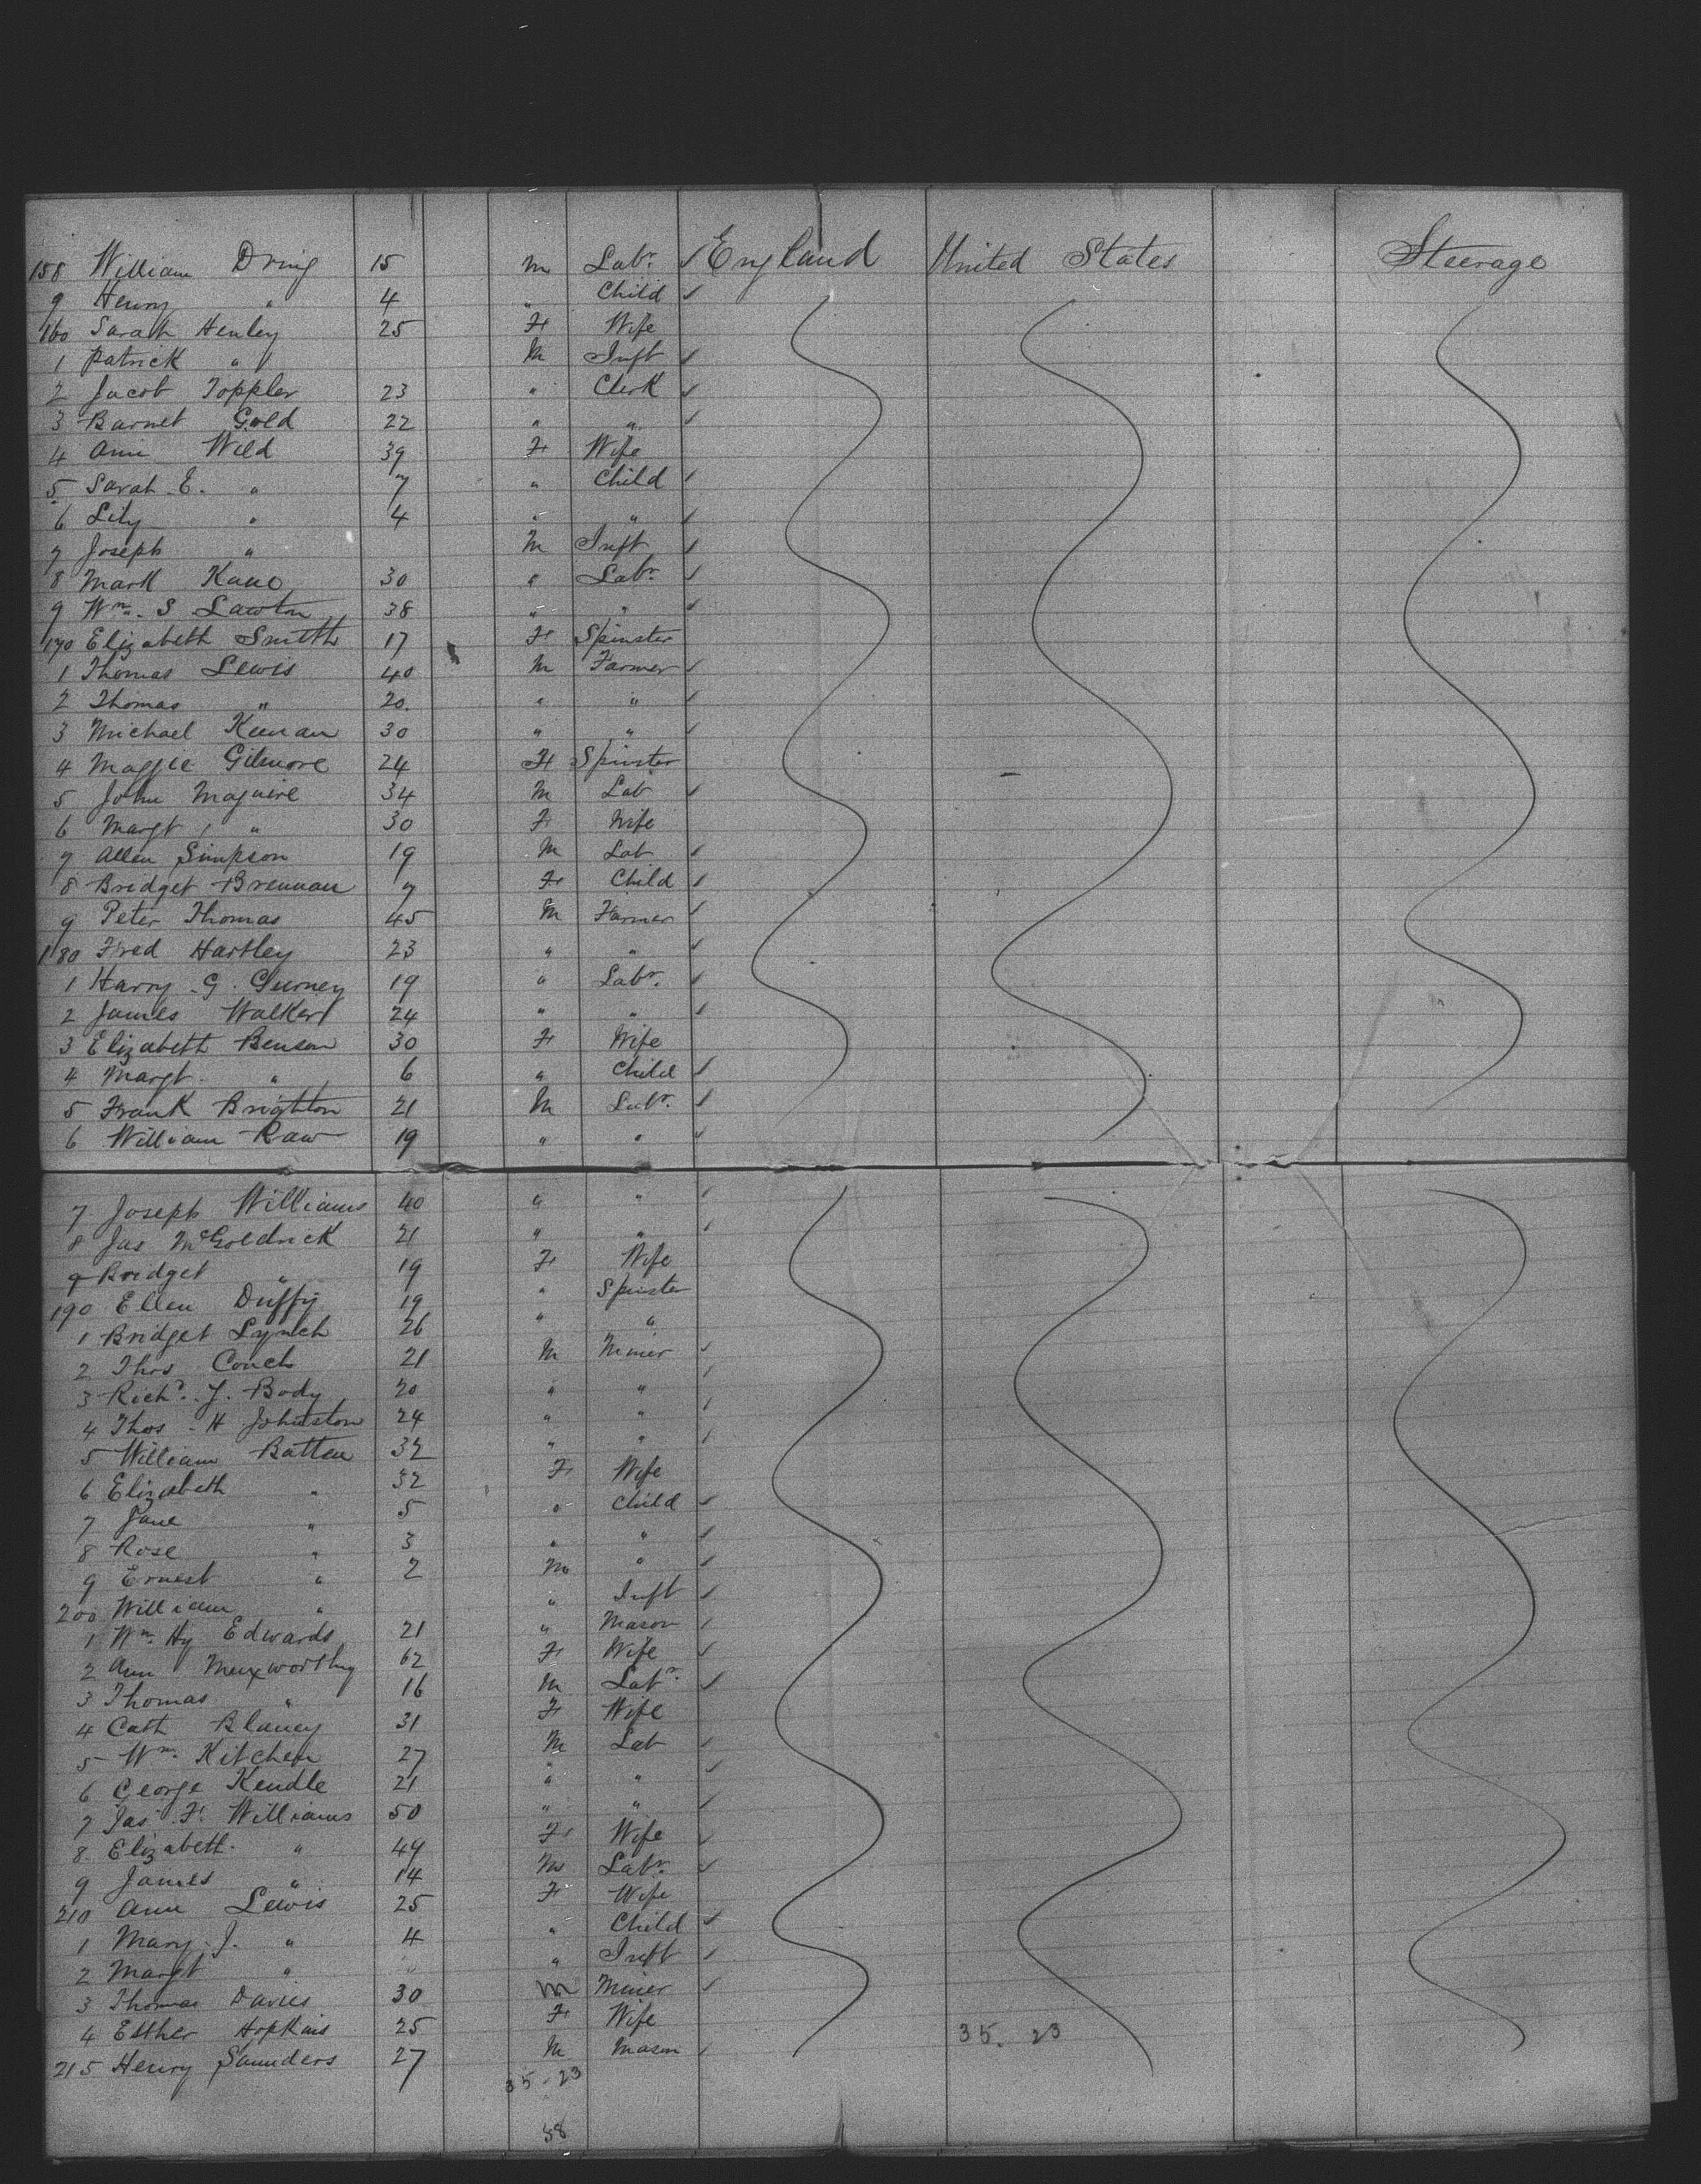 158 William Dring 15 m Labr. ✓ England United States Steerage
9 Henry " 4 " Child ✓
160 Sarah Henley 25 F Wife
1 Patrick " M Inft ✓
2 Jacob Toppler 23 " Clerk ✓
3 Barnet Gold 22 " " ✓
4 Ann Wild 39 F Wife
5 Sarah E. " 7 " Child ✓
6 Lily " 4 " " ✓
7 Joseph " M Inft ✓
8 Mark Kane 30 " Labr. ✓
9 Wm. S Lawton 38 " " ✓
170 Elizabeth Smith 17 F Spinster
1 Thomas Lewis 40 M Farmer ✓
2 Thomas " 20. " " ✓
3 Michael Keenan 30 " " ✓
4 Maggie Gilmore 24 F Spinster
5 John Maguire 34 M Lab ✓
6 Margt " 30 F Wife
7 Allen Simpson 19 M Lab ✓
8 Bridget Brennan 7 F Child ✓
9 Peter Thomas 45 M Farmer ✓
180 Fred Hartley 23 " " ✓
1 Harry G. Gurney 19 " Labr. ✓
2 James Walker 24 " " ✓
3 Elizabeth Benson 30 F Wife
4 Margt. " 6 " Child ✓
5 Frank Brighton 21 M Labr. ✓
6 William Raw 19 " " ✓
7 Joseph Williams 40 " " ✓
8 Jas McGoldrick 21 " " ✓
9 Bridget " 19 F Wife
190 Ellen Duffy 19 " Spinster
1 Bridget Lynch 26 " "
2 Thos Couch 21 M Miner ✓
3 Richd. J. Body 20 " " ✓
4 Thos. H Johnston 24 " " ✓
5 William Batten 32 " " ✓
6 Elizabeth " 32 F Wife
7 Jane " 5 " Child ✓
8 Rose " 3 " " ✓
9 Ernest " 2 M " ✓
200 William " " Inft ✓
1 Wm. Hy Edwards 21 " Mason ✓
2 Ann Muxworthy 62 F Wife ✓
3 Thomas " 16 M Labr. ✓
4 Cath Blaney 31 F Wife
5 Wm. Kitchen 27 M Lab ✓
6 George Kendle 21 " " ✓
7 Jas F. Williams 50 " " ✓
8 Elizabeth. " 49 F Wife ✓
9 James " 14 M Labr. ✓
210 Ann Lewis 25 F Wife
1 Mary J. " 4 " Child ✓
2 Margt " " Inft ✓
3 Thomas Davies 30 M Miner ✓
4 Esther Hopkins 25 F Wife
215 Henry Saunders 27 M Mason ✓ 35. 23
35-23
58